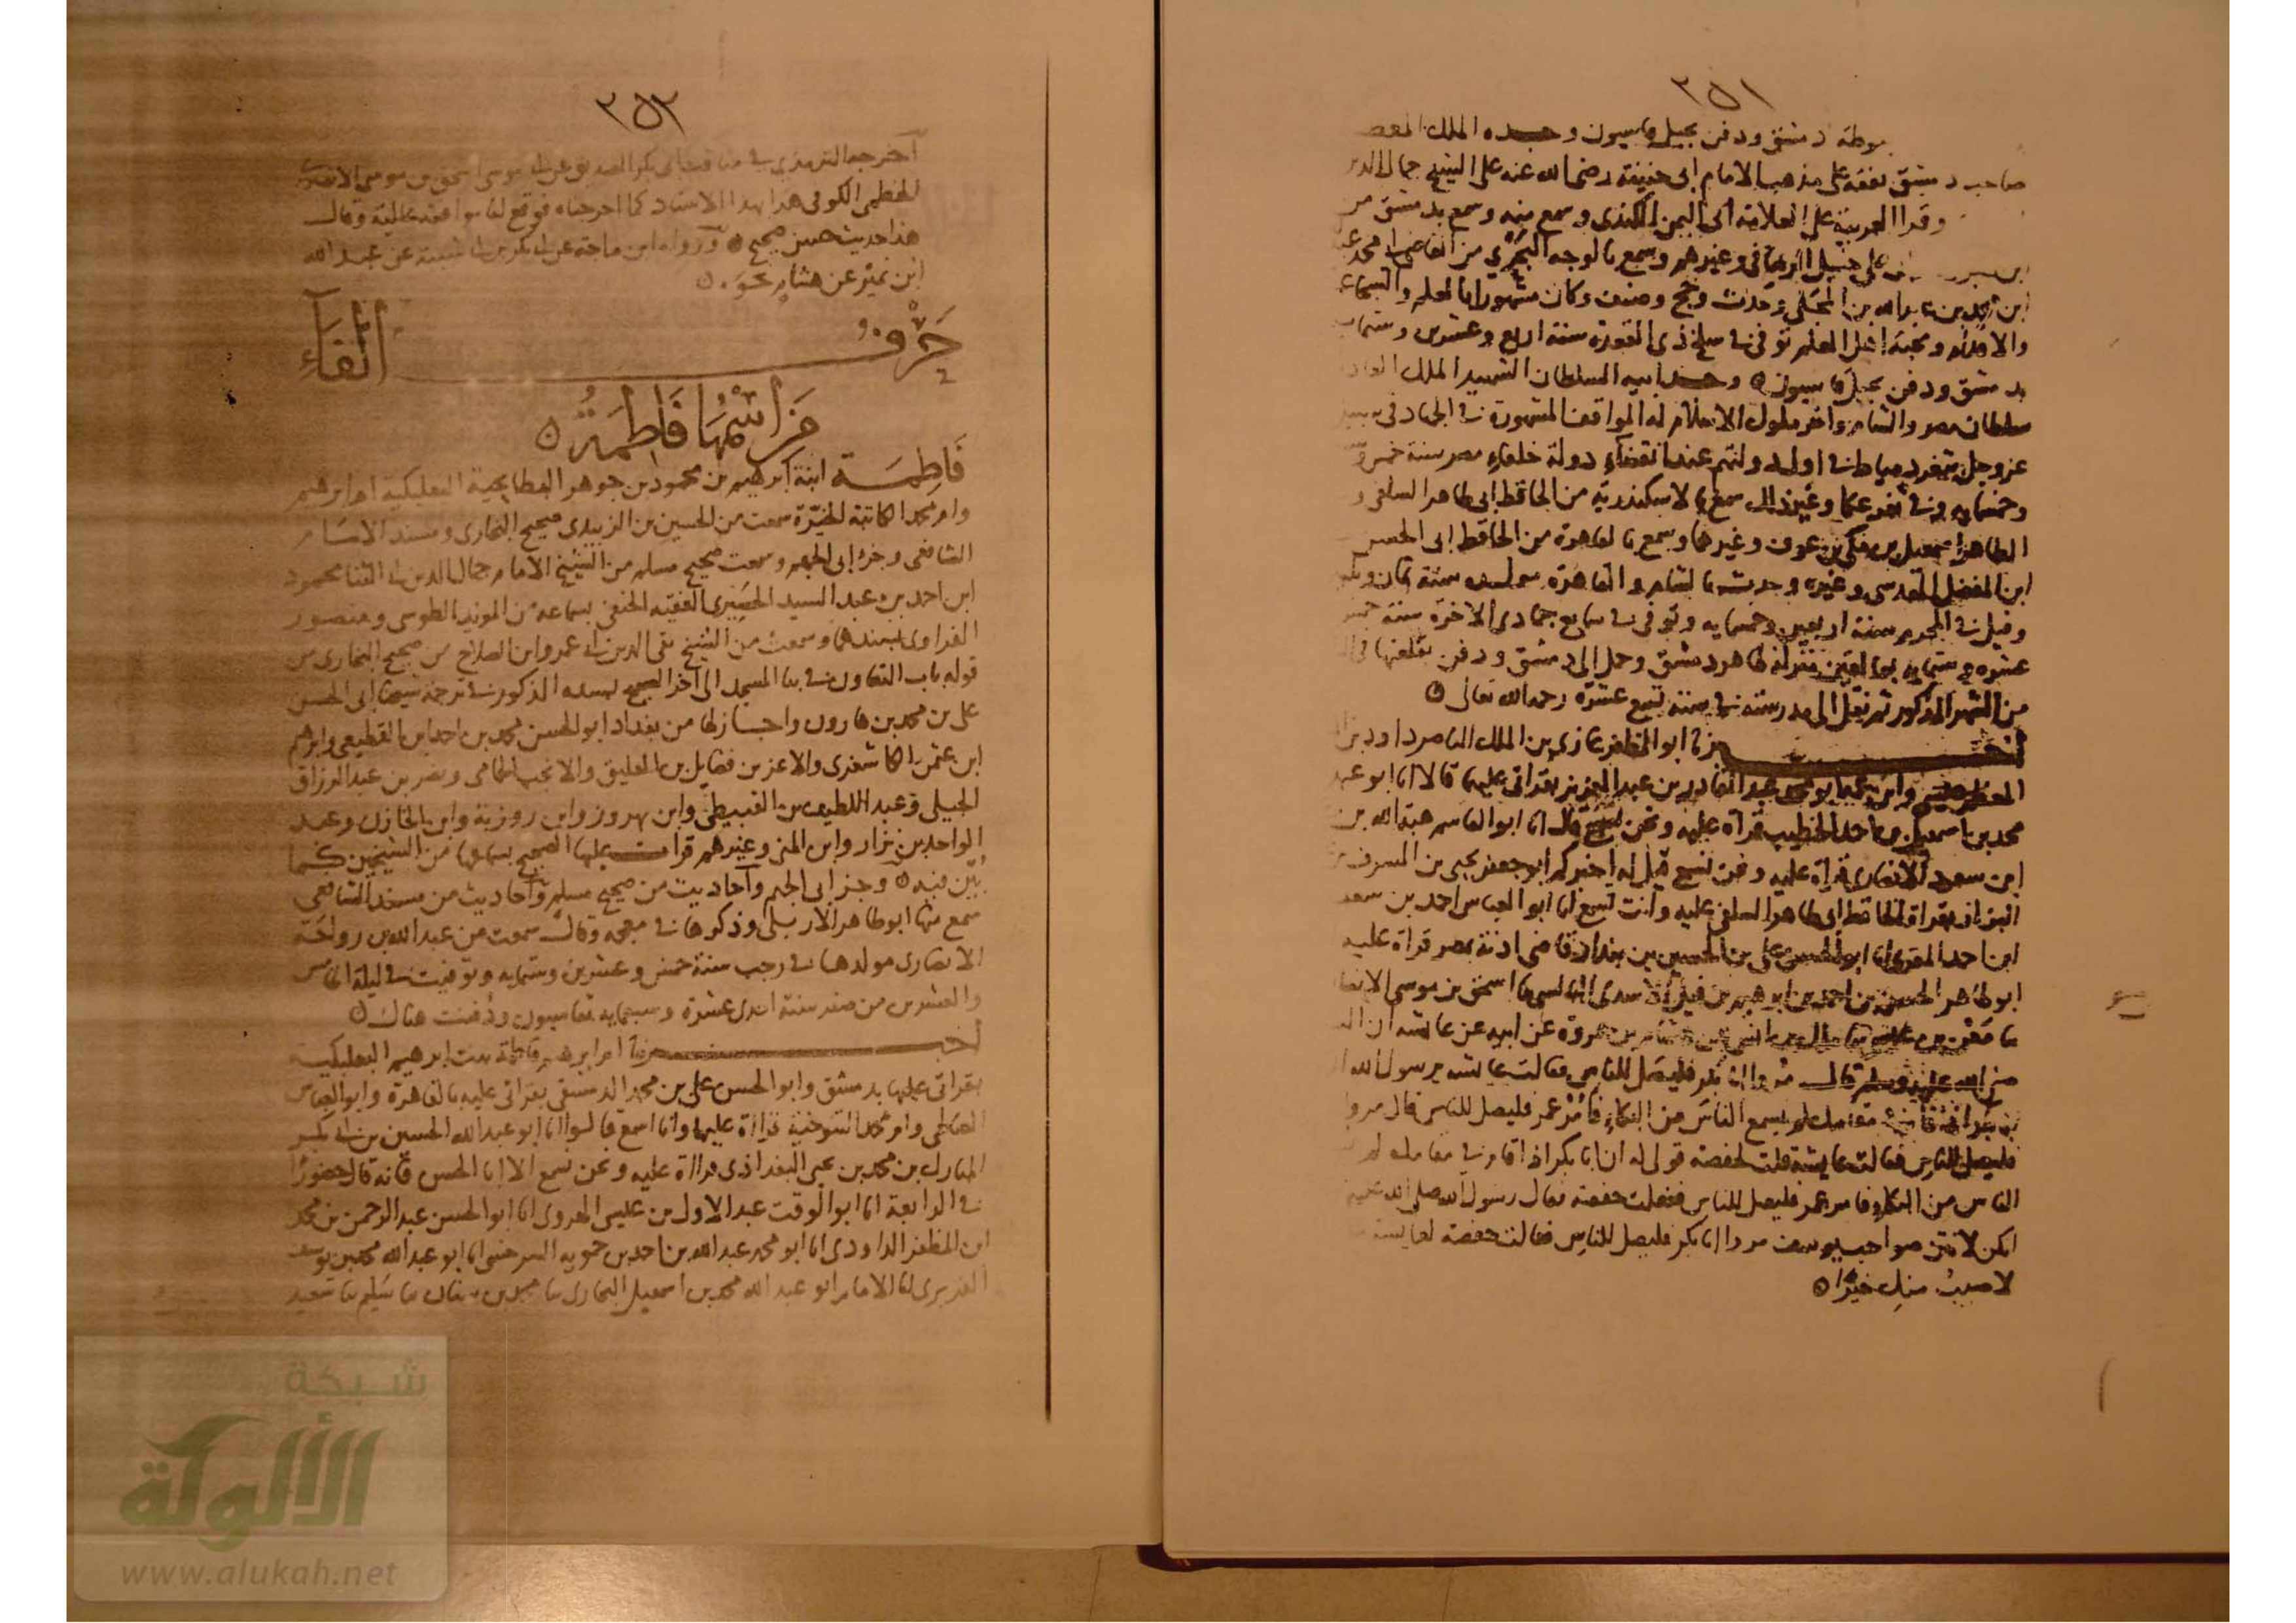 ٣٥١
بدمشق ودفن بجبل قاسيون وجده الملك المعظم
صاحب دمشق تفقه على مذهب الامام ابي حنيفة رضي الله عنه على الشيخ جمال الدين
وقرا العربية على العلامة ابي اليمن الكندي وسمع منه وسمع بدمشق من
على حنبل الرصافي وغيرهم وسمع بالوجه البحري من القاضي محمد
ابن عبد الله بن المحلي وحدث وحج وصنف وكان مشهورا بالعلم والشجاعة
والاقدام ومحبة اهل العلم توفي في سلخ ذي القعدة سنة اربع وعشرين وستماية
بدمشق ودفن بجبل قاسيون ٥ وجد ابيه السلطان الشهيد الملك العادل
سلطان مصر والشام واخر ملوك الاسلام له المواقف المشهورة في الجهاد في سبيل
عز وجل بثغر دمياط في اول دولتهم عند انقضاء دولة خلفاء مصر سنة خمس
وخمسمايه وفي ثغر عكا وغير ذلك سمع بالاسكندرية من الحافظ ابي طاهر السلفي و
الطاهر اسمعيل بن مكي بن عوف وغيرهما وسمع بالقاهرة من الحافظ ابي الحسن
ابن المفضل المقدسي وغيره وحدث بالشام والقاهرة مولده سنة ثمان
وقيل في المحرم سنة اربعين وخمسمايه وتوفي في سابع جمادى الاخرة سنة خمس
عشرة وستمايه بعالقين منزلة ظاهر دمشق وحمل الى دمشق ودفن بقلعتها في
من الشهر المذكور ثم نقل الى مدرسته في سنة تسع عشرة رحمه الله تعالى ٥
اخبرنا ابو المظفر غازي بن الملك الناصر داود بن
المعظم عيسى وابن عمه ابو محمد عبد القادر بن عبد العزيز بقراتي عليهما قالا انا ابو عبد
محمد بن اسمعيل بن احمد الخطيب قراة عليه ونحن نسمع قال انا ابو القاسم هبة الله بن
ابن سعود الانصاري قراة عليه ونحن نسمع قيل له اخبركم ابو جعفر يحيى بن المشرف
البزاز بقراة الحافظ ابي طاهر السلفي عليه وانت تسمع انا ابو العباس احمد بن سعيد
ابن احمد المقري انا ابو الحسن علي بن الحسين بن بندار قاضي اذنة بمصر قراة عليه
ابو طاهر الحسن بن احمد بن ابراهيم بن فيل الاسدي البالسي نا اسحق بن موسى الانصاري
نا معن بن عيسى نا مالك بن انس عن هشام بن عروة عن ابيه عن عايشة ان
صلى الله عليه وسلم قال مروا ابا بكر فليصل للناس فقالت عايشة يرسول الله
ابا بكر اذا قام في مقامك لم يسمع الناس من البكاء فأمر عمر فليصل للناس قال مروا
فليصل للناس فقالت عايشة قلت لحفصة قولي له ان ابا بكر اذا قام في مقامك لم
الناس من البكاء فامر عمر فليصل للناس ففعلت حفصة فقال رسول الله صلى الله عليه
انكن لانتن صواحب يوسف مروا ابا بكر فليصل للناس فقالت حفصة لعايشة
لاصيب منك خيرا ٥
٣٥٢
اخرجه الترمذي في مناقب ابي بكر الصديق عن ابي موسى اسحق بن موسى الانصاري
الخطمي الكوفي هذا بهذا الاسناد كما اخرجناه فوقع لنا موافقة عالية وقال
هذا حديث حسن صحيح ٥ ورواه ابن ماجة عن ابي بكر بن ابي شيبة عن عبد الله
ابن نمير عن هشام نحوه ٥
حَرْفُ الفَآءِ
مَن اسْمُهَا فَاطِمَةُ ٥
فَاطِمَة ابنة ابرهيم بن محمود بن جوهر البطايحية البعلبكية ام ابرهيم
وام محمد الكاتبة الخيّرة سمعت من الحسين بن الزبيدي صحيح البخاري ومسند الامام
الشافعي وجزء ابي الجهم وسمعت صحيح مسلم من الشيخ الامام جمال الدين ابي الثنا محمود
ابن احمد بن عبد السيد الحَصِيري الفقيه الحنفي بسماعه من المويد الطوسي ومنصور
الفراوي بسندهما وسمعت من الشيخ تقي الدين ابي عمرو ابن الصلاح من صحيح البخاري من
قوله باب التعاون في بنا المسجد الى اخر الصحيح بسنده المذكور في ترجمة شيخنا ابي الحسن
علي بن محمد بن هارون واجاز لها من بغداد ابو الحسن محمد بن احمد بن القطيعي وابرهيم
ابن عثمن الكاشغري والاعز بن فضايل بن العليق والانجب الحمامي ونصر بن عبد الرزاق
الجيلي وعبد اللطيف بن القبيطي وابن بهروز وابن روزبة وابن الخازن وعبد
الواحد بن نزار وابن المني وغيرهم قرات عليها الصحيح بسماعها من الشيخين كما
بُيّن فيه ٥ وجزء ابي الجهم واحاديث من صحيح مسلم واحاديث من مسند الشافعي
سمع منها ابو طاهر الاربلي وذكرها في معجمه وقال سمعت من عبد الله بن رواحة
الانصاري مولدها في رجب سنة خمس وعشرين وستمايه وتوفيت في ليلة الخامس
والعشرين من صفر سنة احدى عشرة وسبعمايه بقاسيون ودُفنت هناك ٥
اخبرتنا ام ابرهيم فاطمة بنت ابرهيم البعلبكية
بقراتي عليها بدمشق وابو الحسن علي بن محمد الدمشقي بقراتي عليه بالقاهرة وابو العباس
الصالحي وام محمد التنوخية قراة عليهما وانا اسمع قالوا انا ابو عبد الله الحسين بن ابي بكر
المبارك بن محمد بن يحيى البغداذي قراة عليه ونحن نسمع الا ابا الحسن فانه قال حضورا
في الرابعة انا ابو الوقت عبد الاول بن عيسى الهروي انا ابو الحسن عبد الرحمن بن محمد
ابن المظفر الداودي انا ابو محمد عبد الله بن احمد بن حمويه السرخسي انا ابو عبد الله محمد بن يوسف
الفربري انا الامام ابو عبد الله محمد بن اسمعيل البخاري نا محمد بن سنان نا سَلِيم نا سعيد
شبكة
الألوكة
www.alukah.net